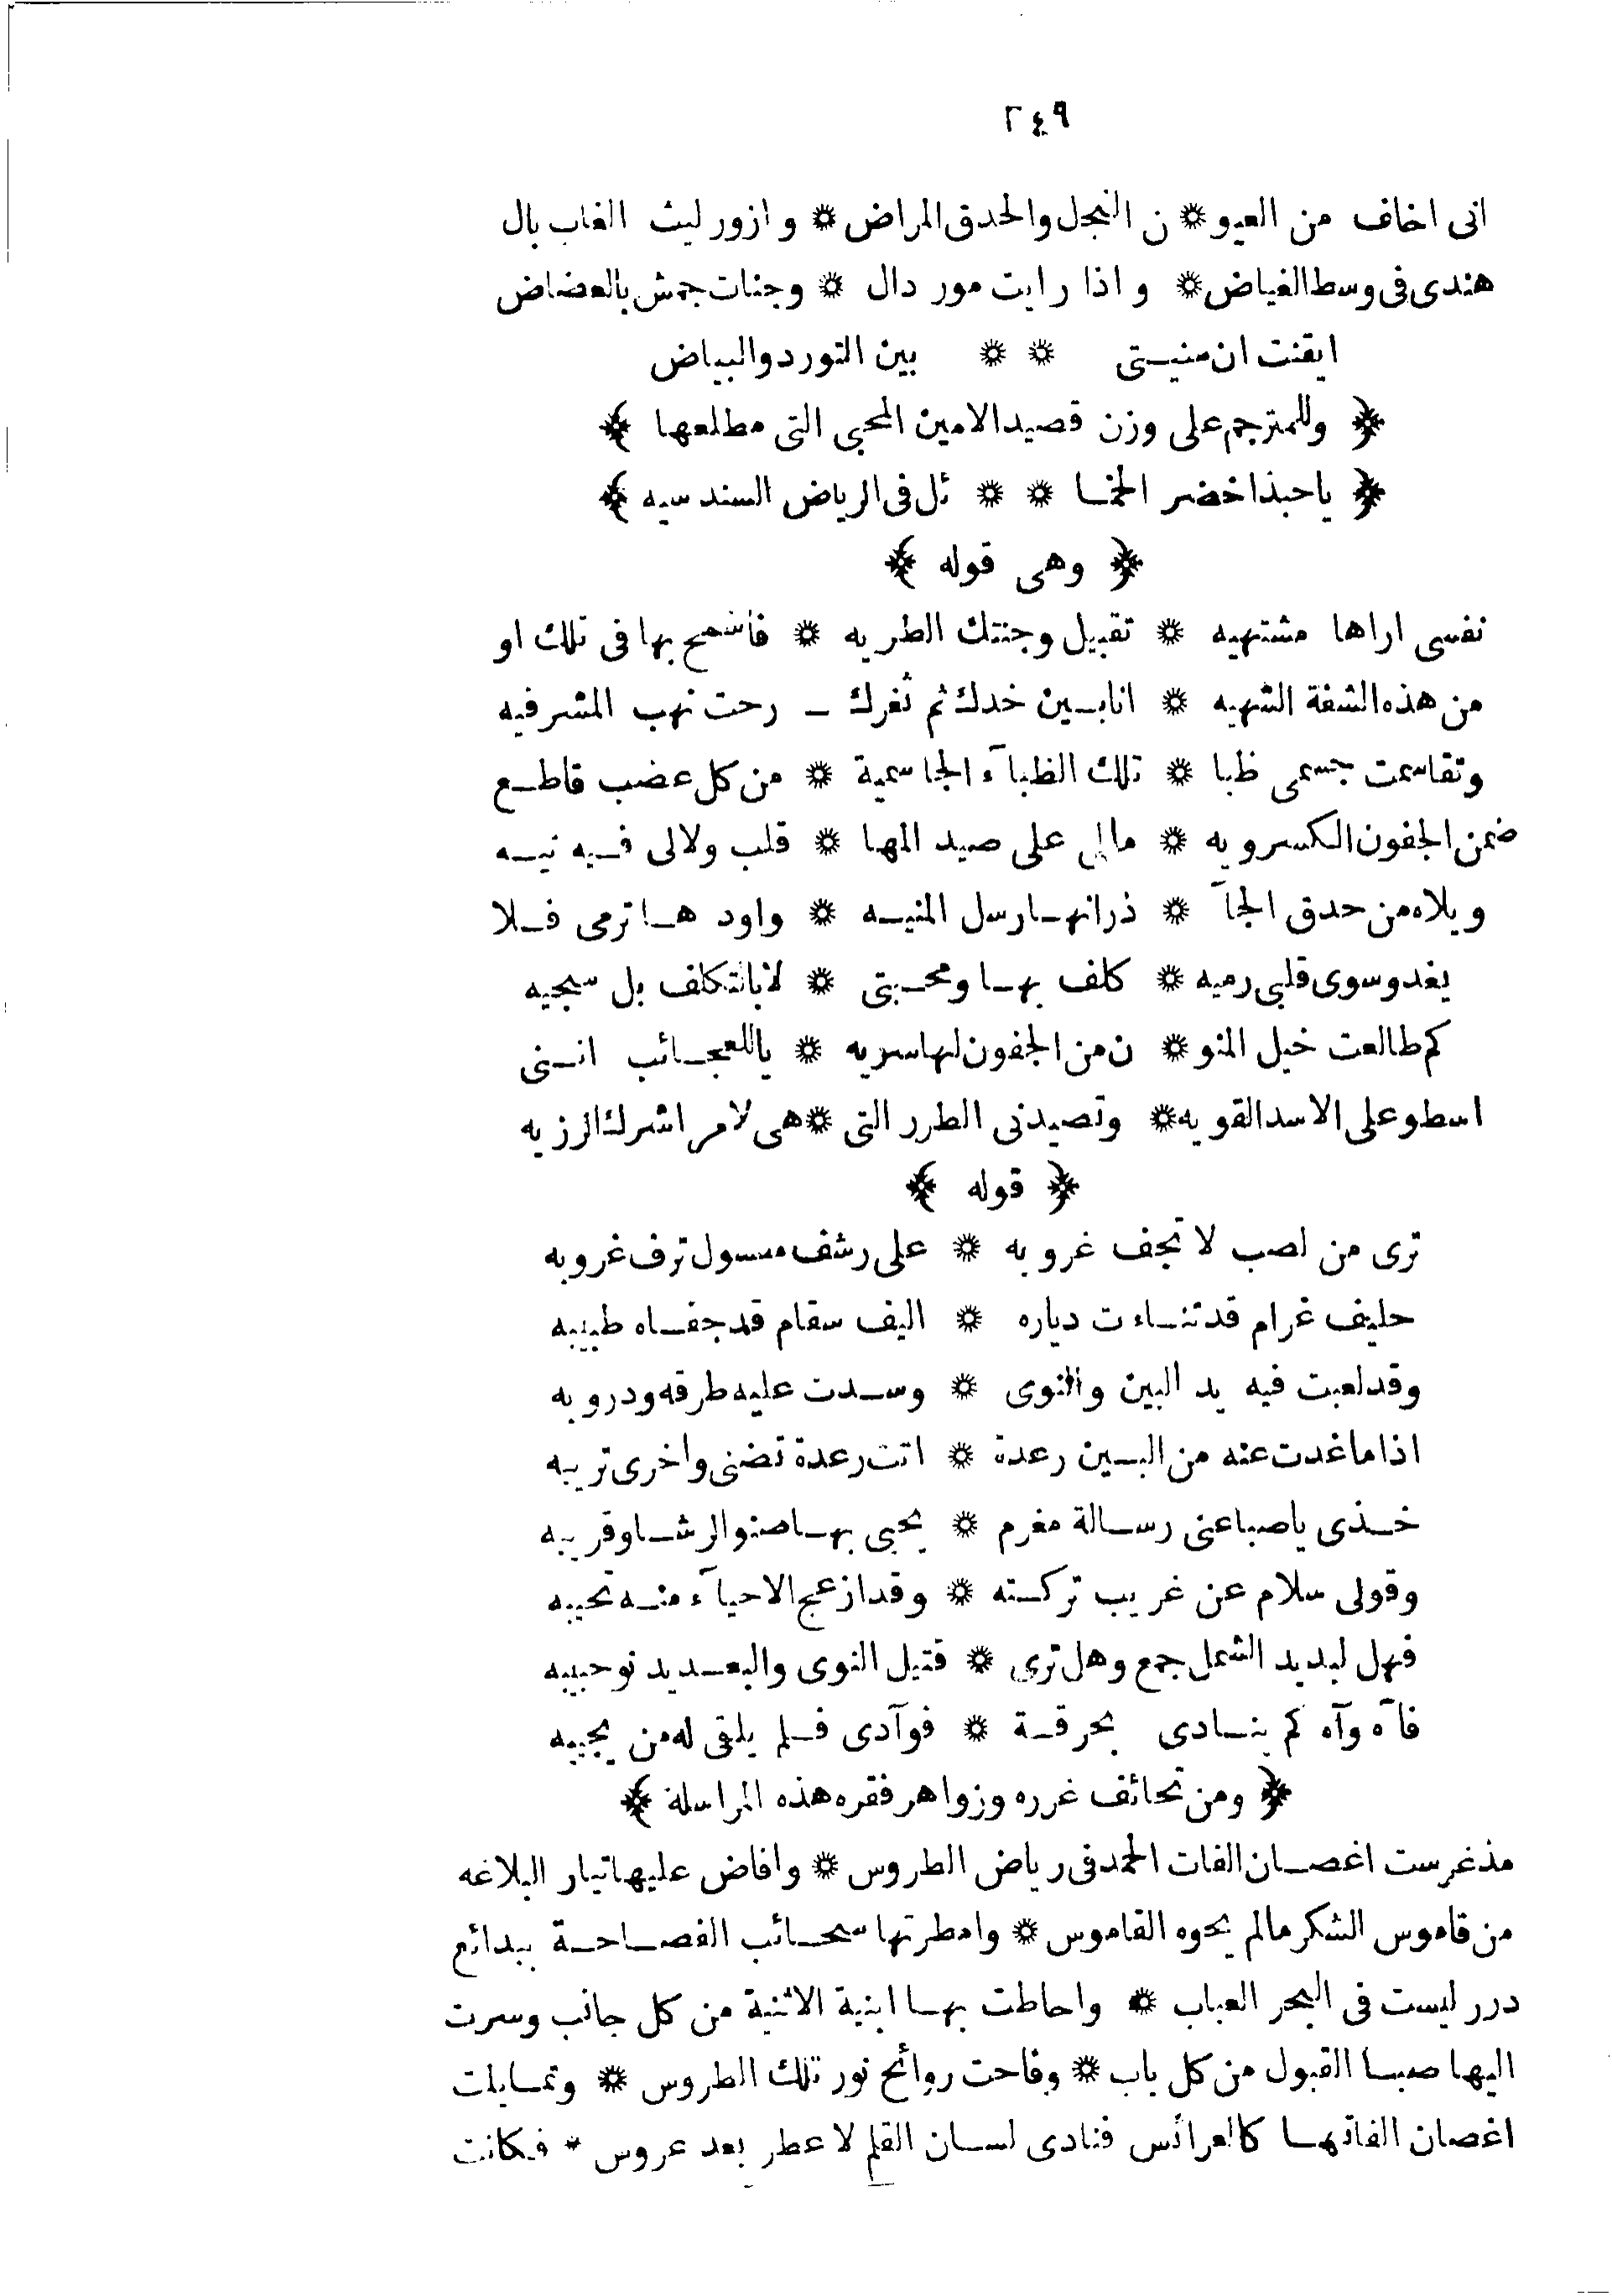 ٢٤٩
انى اخاف من العيو * ن النجل والحدق المراض * وازور ليث الغاب بال
هندى فى وسط الغياض * واذا رايت مورد ال * وجنات جمش بالعضاض
ايقنت ان منيتى * * بين التورد والبياض
﴿ وللمترجم على وزن قصيد الامين المحبى التى مطلعها ﴾
﴿ ياحبذا خضر الخما * * ئل فى الرياض السندسيه ﴾
﴿ وهى قوله ﴾
نفسى اراها مشتهيه * تقبيل وجنتك الطريه * فاسمح بها فى تلك او
من هذه الشفة الشهيه * انا بين خدك ثم ثغرك ـ رحت نهب المشرفيه
وتقاسمت جسمى ظبا * تلك الظبآء الجاسمية * من كل عضب قاطع
ضمن الجفون الكسرويه * مالى على صيد المها * قلب ولالى فيه نيه
ويلاه من حدق الجآ * ذرانها رسل المنيه * واود ها ترمى فلا
يغدو سوى قلبى رميه * كلف بها ومحبتى * لا بالتكلف بل سجيه
كم طالعت خيل المنو * ن من الجفون لها سريه * ياللعجائب اننى
اسطو على الاسد القويه * وتصيدنى الطرر التى * هى لامر اشرك الرزيه
﴿ قوله ﴾
ترى من لصب لا تجف غروبه * على رشف معسول ترف غروبه
حليف غرام قد تناءت دياره * اليف سقام قد جفاه طبيبه
وقد لعبت فيه يد البين والنوى * وسدت عليه طرقه ودروبه
اذا ما غدت عنه من البين رعدة * اتت رعدة تضنى واخرى تريبه
خذى ياصبا عنى رسالة مغرم * يحيى بها صنو الرشا وقريبه
وقولى سلام عن غريب تركته * وقد ازعج الاحيآء منه نحيبه
فهل لبديد الشمل جمع وهل ترى * قتيل النوى والبعد يدنو حبيبه
فآه وآه كم ينادى بحرقة * فوآدى فلم يلقى له من يجيبه
﴿ ومن تحائف غرره وزواهر فقره هذه المراسلة ﴾
مذ غرست اغصان الفات الحمد فى رياض الطروس * وافاض عليها تيار البلاغه
من قاموس الشكر مالم يحوه القاموس * وامطرتها سحائب الفصاحة ببدائع
درر ليست فى البحر العباب * واحاطت بها ابنية الاثنية من كل جانب وسرت
اليها صبا القبول من كل باب * وفاحت روائح نور تلك الطروس * وتمايلت
اغصان الفاتها كالعرائس فنادى لسان القلم لا عطر بعد عروس * فكانت